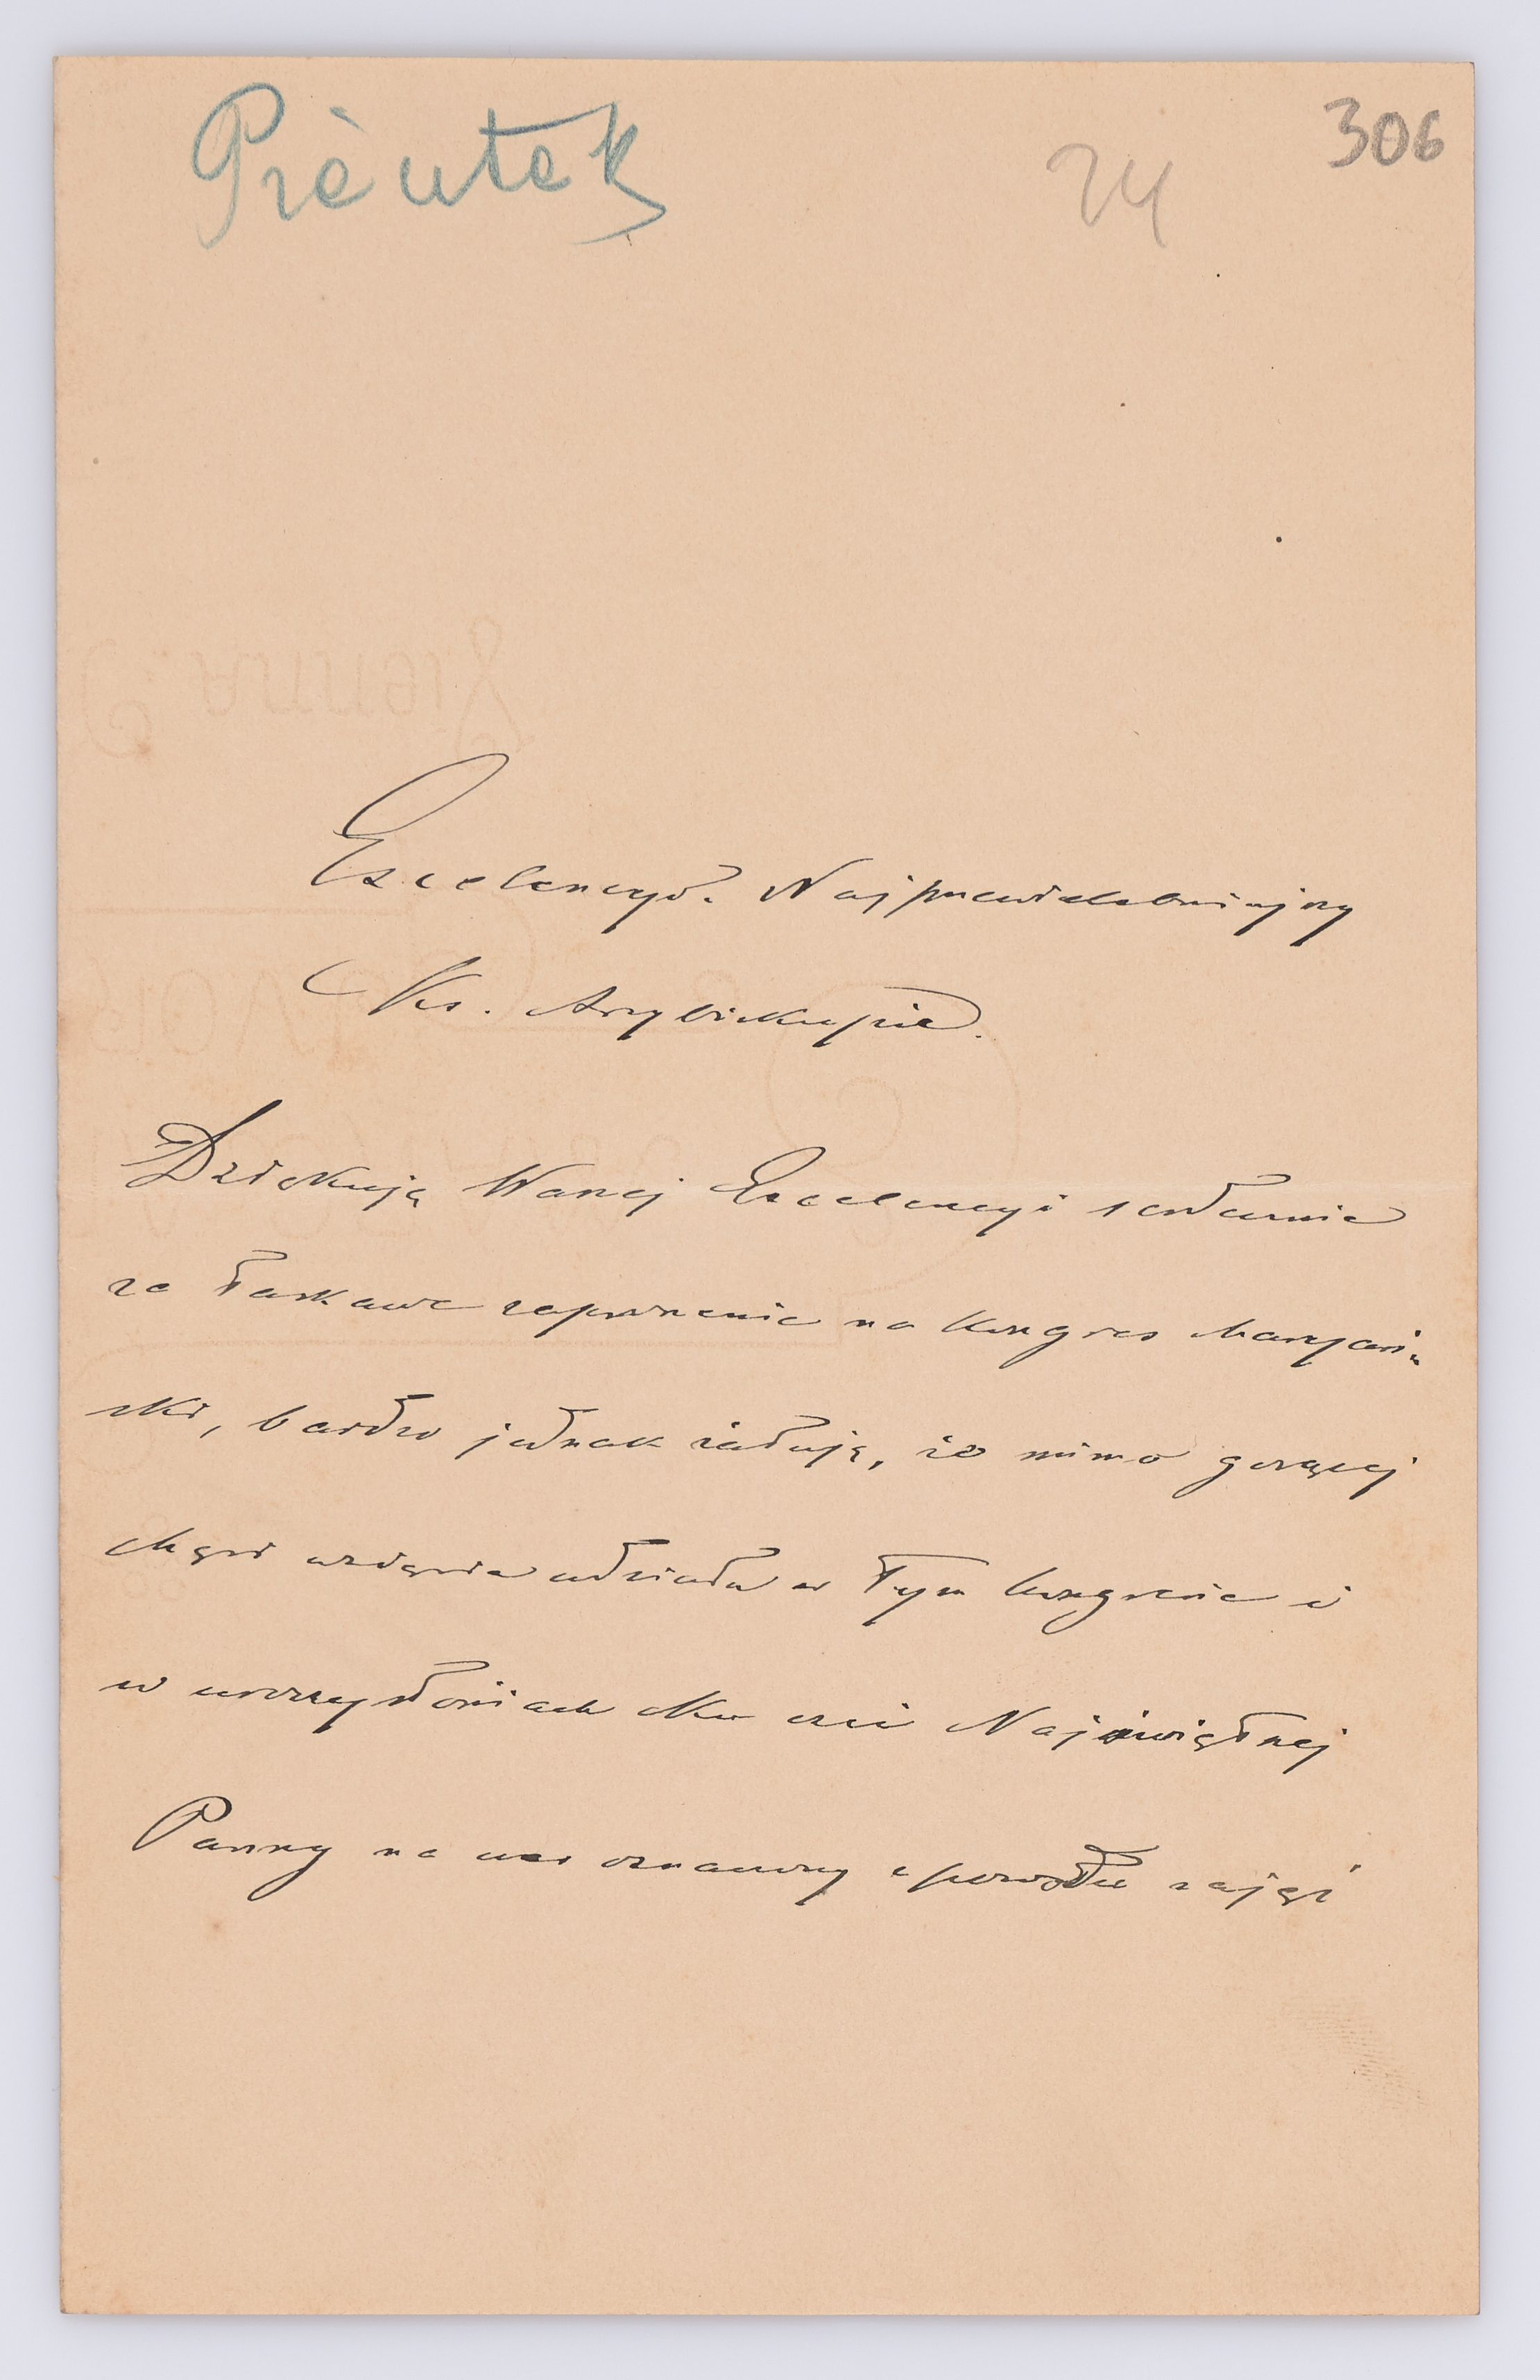 Piėntek
24
306
Excelencyo. Najprzewielebniejszy
Ks. Arcybiskupie.
Dziękuję Waszej Excelencyi serdecznie
za łaskawe zaproszenie na kongres Maryań-
ski, bardzo jednak żałuję, że mimo gorącej
chęci wzięcia udziału w tym kongresie i
w uroczystościach ku czci Najświętszej
Panny na czas oznaczony z powodu zajęć